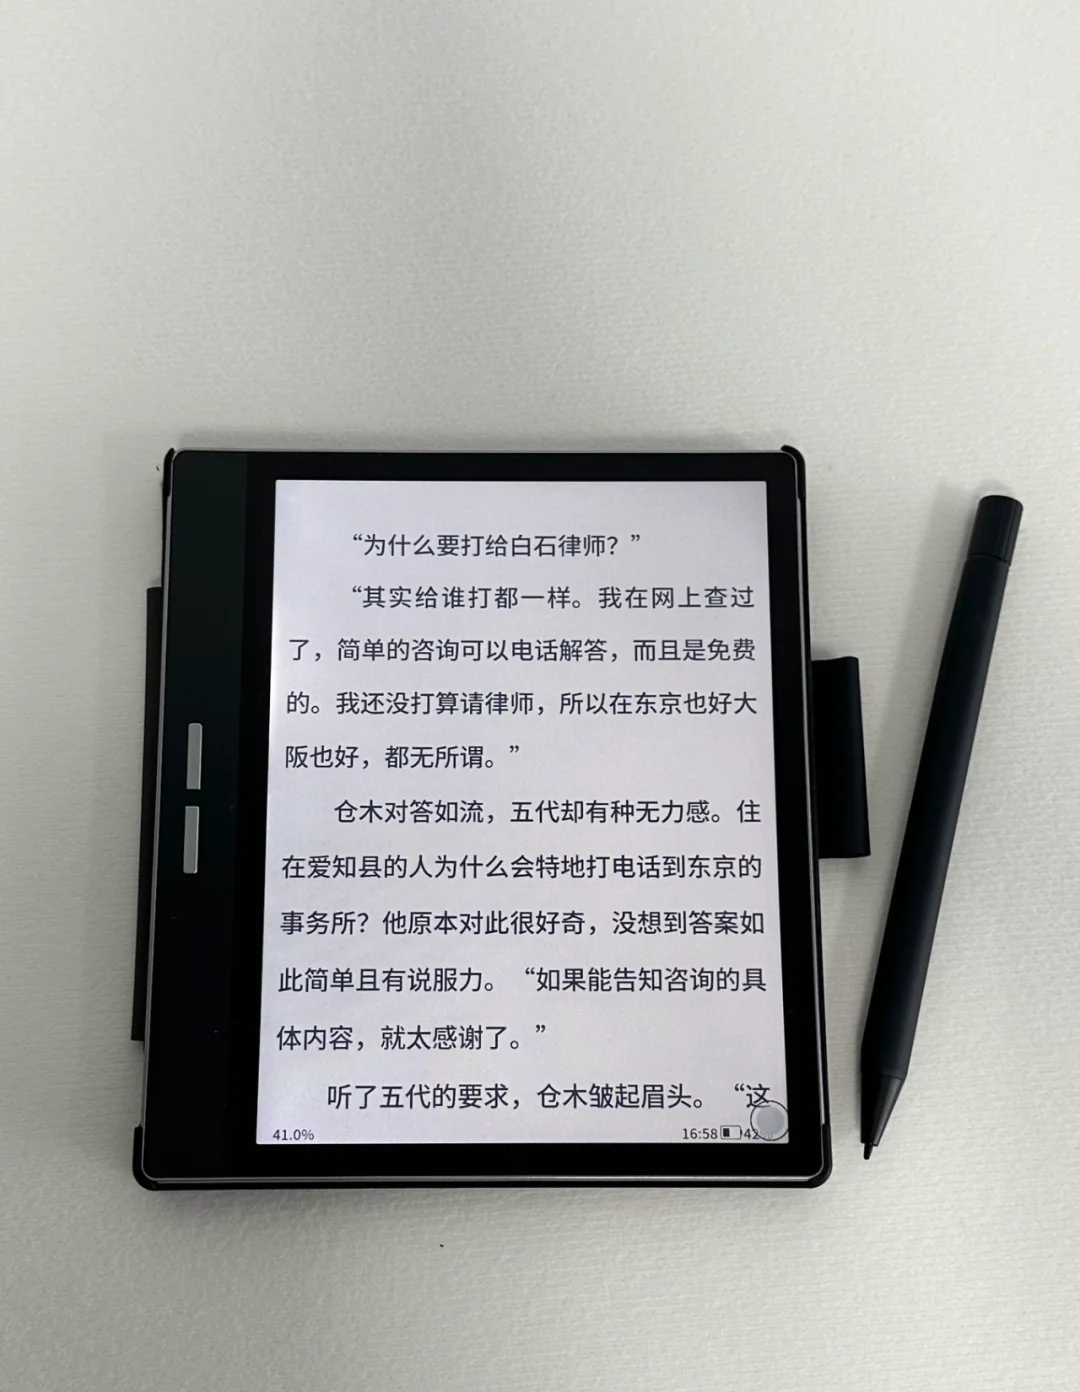 “为什么要打给白石律师？”
“其实给谁打都一样。我在网上查过
了，简单的咨询可以电话解答，而且是免费
的。我还没打算请律师，所以在东京也好大
阪也好，都无所谓。”
仓木对答如流，五代却有种无力感。住
在爱知县的人为什么会特地打电话到东京的
事务所？他原本对此很好奇，没想到答案如
此简单且有说服力。“如果能告知咨询的具
体内容，就太感谢了。”
听了五代的要求，仓木皱起眉头。“这
41.0%
16:58 42%